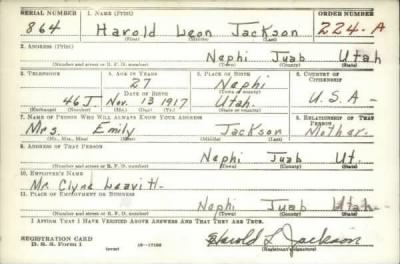 SERIAL NUMBER 1. NAME (Print) ORDER NUMBER
864 Harold Leon Jackson 224-A
(First) (Middle) (Last)
2. ADDRESS (Print)
Nephi Juab Utah
(Number and street or R. F. D. number) (Town) (County) (State)
3. TELEPHONE 4. AGE IN YEARS 5. PLACE OF BIRTH 6. COUNTRY OF CITIZENSHIP
27 Nephi
(Town or county)
46J Nov. 13 1917 Utah U.S.A-
(Exchange) (Number) (Mo.) (Day) (Yr.) (State or country)
7. NAME OF PERSON WHO WILL ALWAYS KNOW YOUR ADDRESS 8. RELATIONSHIP OF THAT PERSON
Mrs. Emily Jackson Mother-
(Mr., Mrs., Miss) (First) (Middle) (Last)
9. ADDRESS OF THAT PERSON
Nephi Juab Ut.
(Number and street or R. F. D. number) (Town) (County) (State)
10. EMPLOYER'S NAME
Mr. Clyne Leavitt-
11. PLACE OF EMPLOYMENT OR BUSINESS
Nephi Juab Utah-
(Number and street or R. F. D. number) (Town) (County) (State)
I AFFIRM THAT I HAVE VERIFIED ABOVE ANSWERS AND THAT THEY ARE TRUE.
REGISTRATION CARD
D. S. S. Form 1 16-17105 Harold L. Jackson
(Registrant's signature)